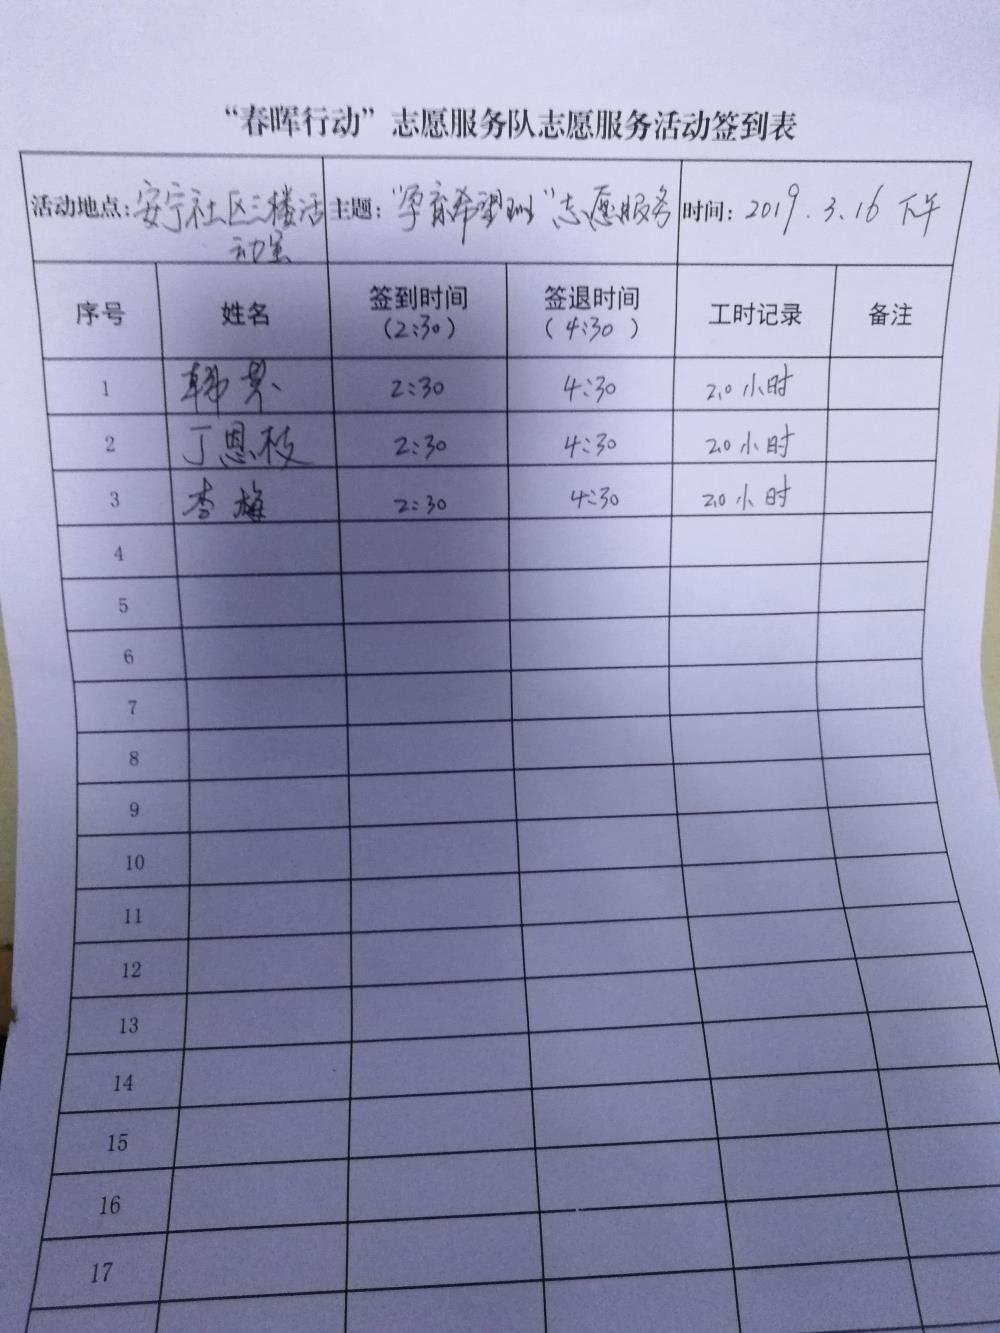 “春晖行动”志愿服务队志愿服务活动签到表
活动地点：安宁社区三楼活动室 主题：“孕育希望 ”志愿服务 时间：2019.3.16 下午
序号 姓名 签到时间（2:30） 签退时间（4:30） 工时记录 备注
1 韩 2:30 4:30 2.0小时
2 丁恩枝 2:30 4:30 2.0小时
3 李梅 2:30 4:30 2.0小时
4
5
6
7
8
9
10
11
12
13
14
15
16
17